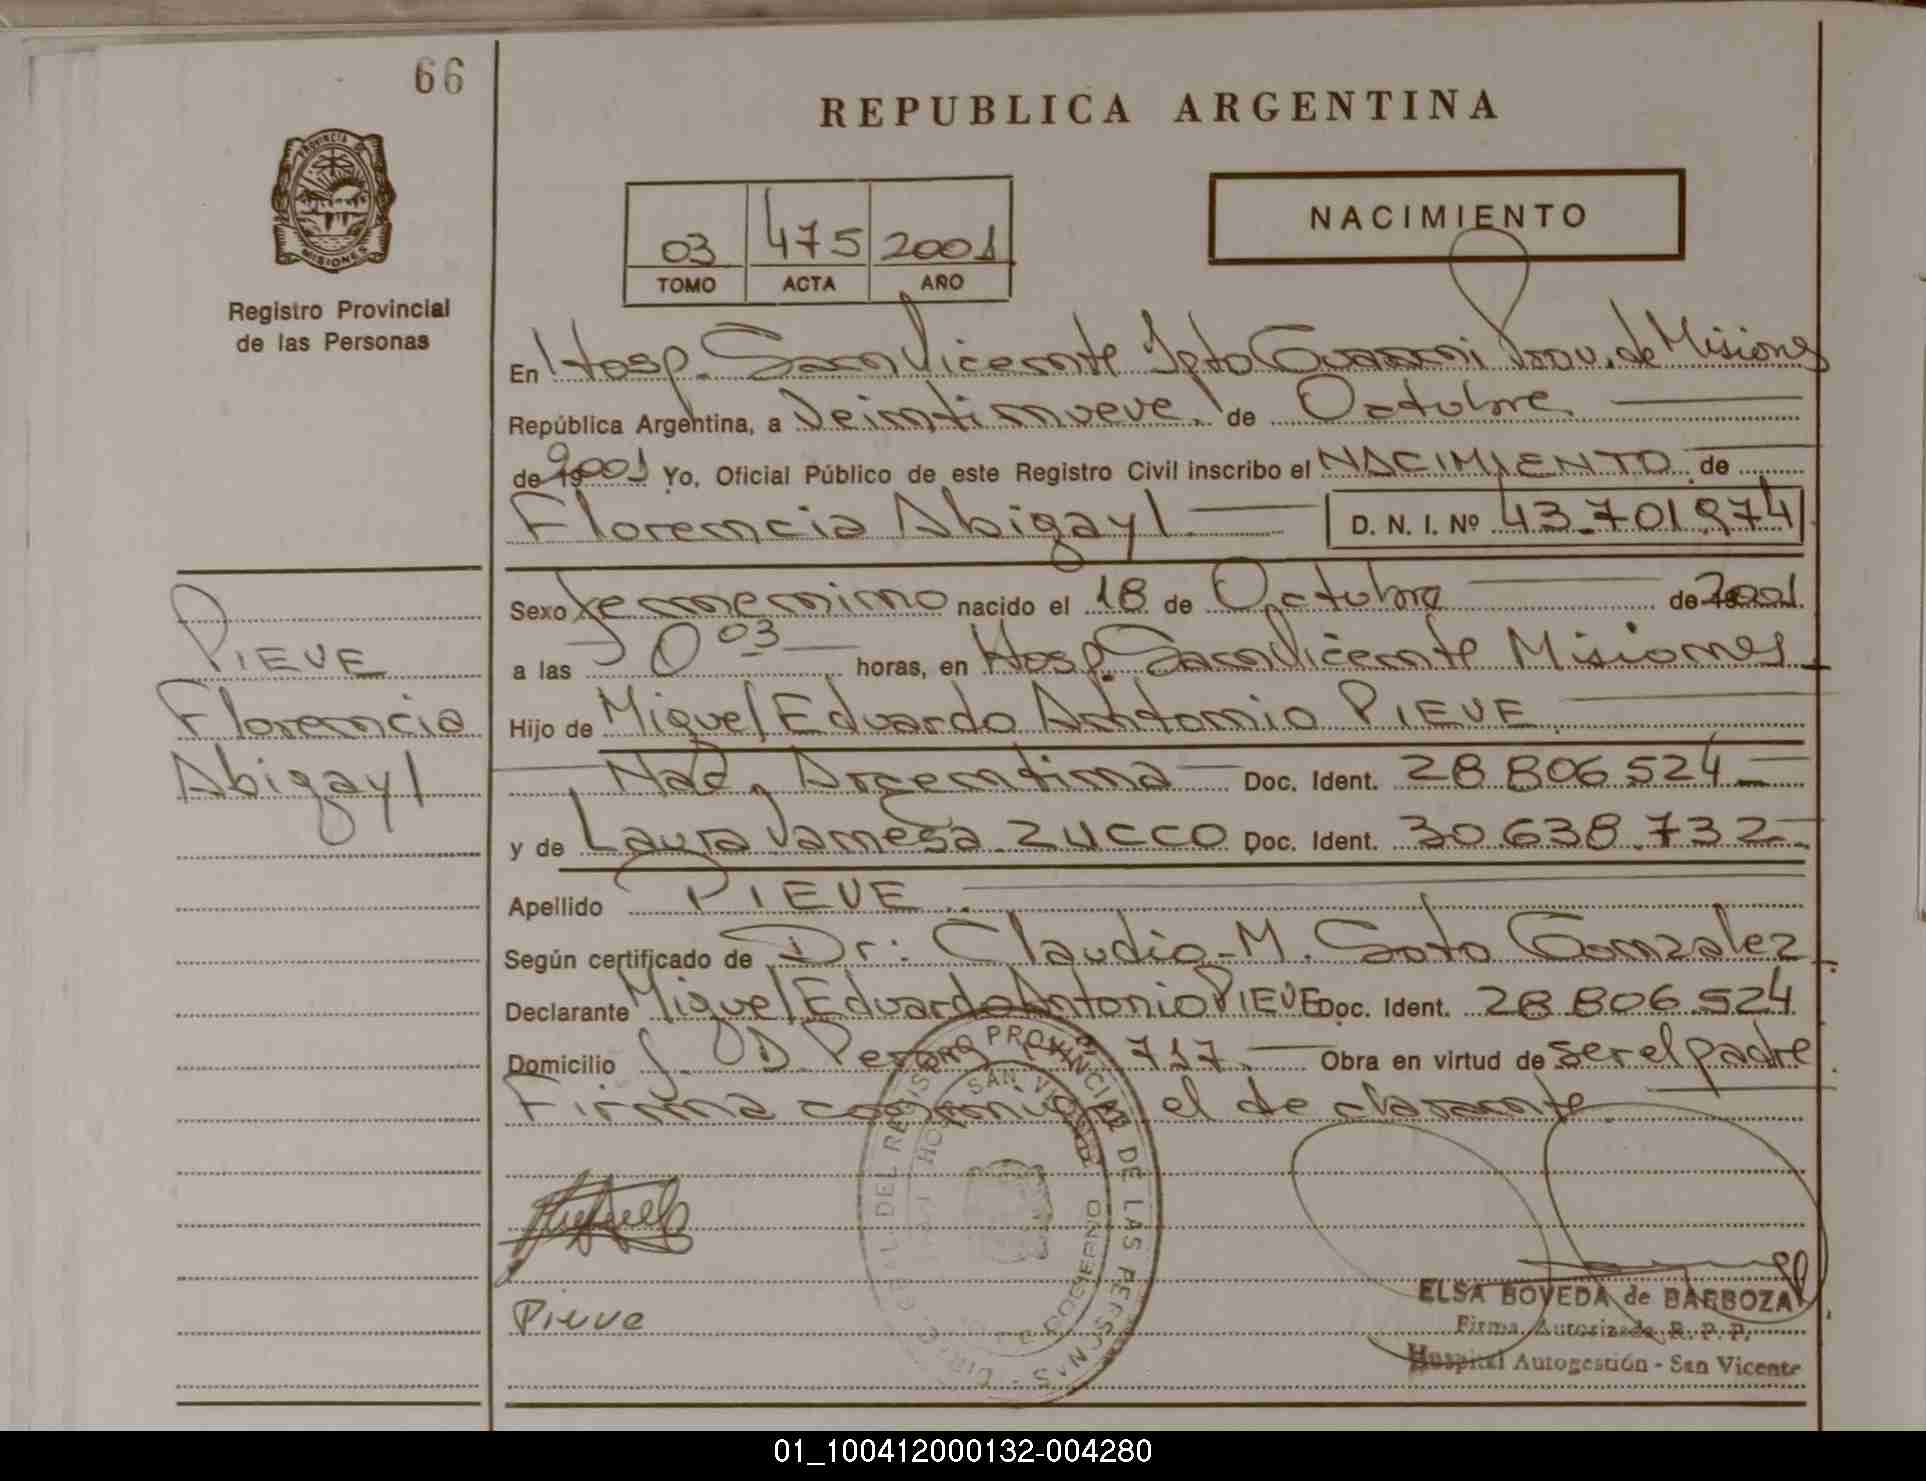 66
REPUBLICA ARGENTINA
PROVINCIA DE
MISIONES
Registro Provincial
de las Personas
03 475 2001
TOMO ACTA AÑO
NACIMIENTO
En Hosp. San Vicente Dpto Guarani Prov. de Misiones
República Argentina, a Veintinueve de Octubre
de 2001 Yo, Oficial Público de este Registro Civil inscribo el NACIMIENTO de
Florencia Abigayl D. N. I. Nº 43.701.974
Sexo femenino nacido el 18 de Octubre de 2001
a las 0 03 horas, en Hosp San Vicente Misiones
Hijo de Miguel Eduardo Antonio PIEVE
Nac. Argentina Doc. Ident. 28.806.524
y de Laura Vanesa ZUCCO Doc. Ident. 30.638.732
Apellido PIEVE
Según certificado de Dr: Claudio M. Soto Gonzalez
Declarante Miguel Eduardo Antonio PIEVE Doc. Ident. 28.806.524
Domicilio J. D. Peron 717 Obra en virtud de ser el padre
Firma conmigo el declarante
PIEVE
Florencia
Abigayl
Pieve
DEL REGISTRO PROVINCIAL DE LAS PERSONAS
SAN VICENTE
GOBIERNO
ELSA BOVEDA de BARBOZA
Firma Autorizada R. P. P.
Hospital Autogestión - San Vicente
01_100412000132-004280